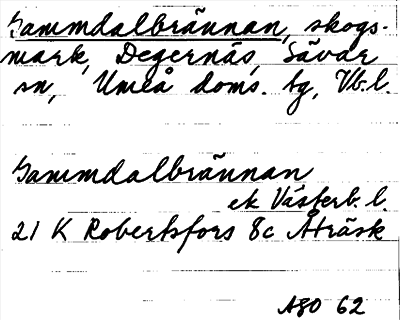 Gammdalbrännan, skogs-
mark, Degernäs, Sävar
sn, Umeå doms. tg, Vb. l.
Gammdalbrännan
ek Västerb. l.
21 K Robertsfors 8c Åträsk
ASO 62